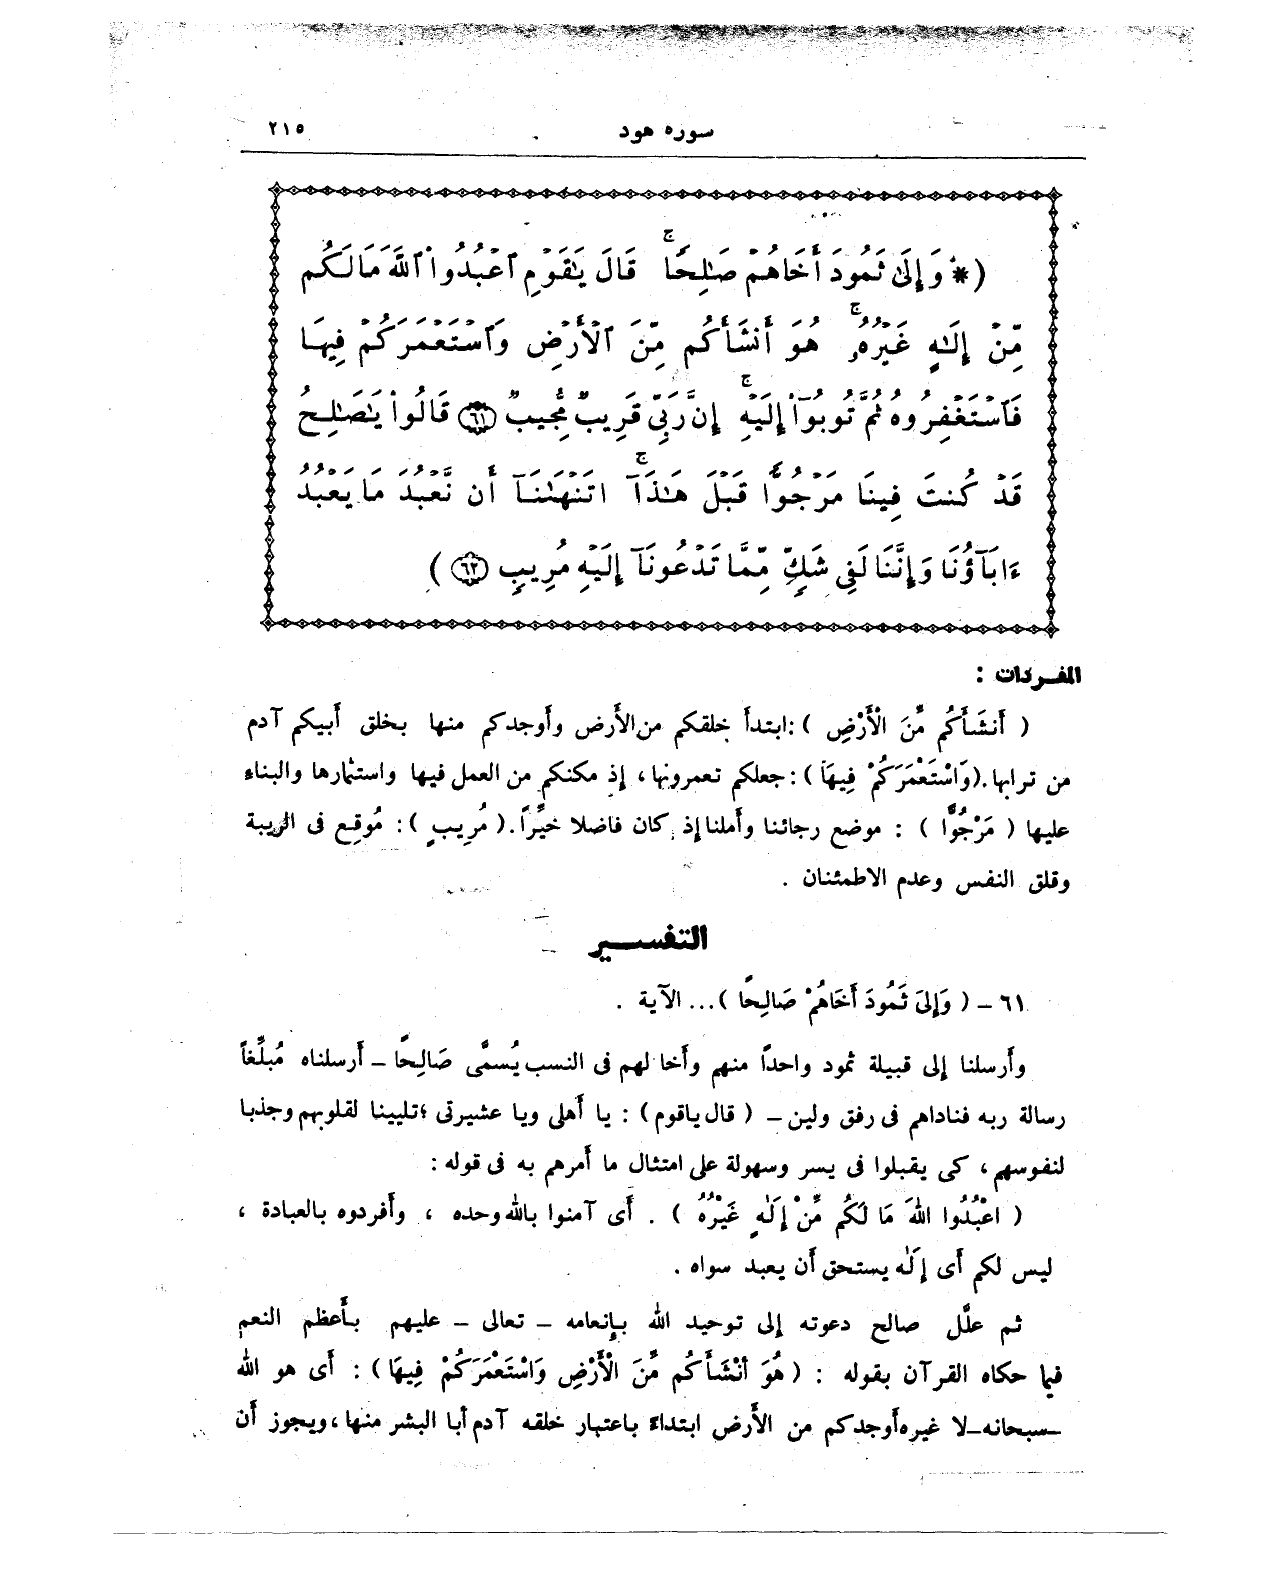 سوره هود ٢١٥
( * وَإِلَىٰ ثَمُودَ أَخَاهُمْ صَٰلِحًا ۚ قَالَ يَٰقَوْمِ ٱعْبُدُوا۟ ٱللَّهَ مَا لَكُم
مِّنْ إِلَٰهٍ غَيْرُهُۥ ۖ هُوَ أَنشَأَكُم مِّنَ ٱلْأَرْضِ وَٱسْتَعْمَرَكُمْ فِيهَا
فَٱسْتَغْفِرُوهُ ثُمَّ تُوبُوٓا۟ إِلَيْهِ ۚ إِنَّ رَبِّى قَرِيبٌ مُّجِيبٌ ٦١ قَالُوا۟ يَٰصَٰلِحُ
قَدْ كُنتَ فِينَا مَرْجُوًّا قَبْلَ هَٰذَآ ۖ أَتَنْهَىٰنَآ أَن نَّعْبُدَ مَا يَعْبُدُ
ءَابَآؤُنَا وَإِنَّنَا لَفِى شَكٍّ مِّمَّا تَدْعُونَآ إِلَيْهِ مُرِيبٍ ٦٢ )
المفردات :
( أَنشَأَكُم مِّنَ الْأَرْضِ ) : ابتدأ خلقكم من الأرض وأوجدكم منها بخلق أبيكم آدم
من ترابها . ( وَاسْتَعْمَرَكُمْ فِيهَا ) : جعلكم تعمرونها ، إذ مكنكم من العمل فيها واستثمارها والبناء
عليها ( مَرْجُوًّا ) : موضع رجائنا وأملنا إذ كان فاضلا خيِّرًا . ( مُرِيبٍ ) : مُوقِع فى الريبة
وقلق النفس وعدم الاطمئنان .
التفسير
٦١ – ( وَإِلَىٰ ثَمُودَ أَخَاهُمْ صَالِحًا ) ... الآية .
وأرسلنا إلى قبيلة ثمود واحدًا منهم وأخا لهم فى النسب يُسمَّى صَالِحًا – أرسلناه مُبلِّغاً
رسالة ربه فناداهم فى رفق ولين – ( قال ياقوم ) : يا أهلى ويا عشيرتى ؛ تليينا لقلوبهم وجذبا
لنفوسهم ، كى يقبلوا فى يسر وسهولة على امتثال ما أمرهم به فى قوله :
( اعْبُدُوا اللهَ مَا لَكُم مِّنْ إِلَٰهٍ غَيْرُهُ ) . أى آمنوا بالله وحده ، وأفردوه بالعبادة ،
ليس لكم أى إلَٰه يستحق أن يعبد سواه .
ثم علَّل صالح دعوته إلى توحيد الله بإنعامه – تعالى – عليهم بأعظم النعم
فيما حكاه القرآن بقوله : ( هُوَ أَنْشَأَكُم مِّنَ الْأَرْضِ وَاسْتَعْمَرَكُمْ فِيهَا ) : أى هو الله
–سبحانه– لا غيره أوجدكم من الأرض ابتداءً باعتبار خلقه آدم أبا البشر منها ، ويجوز أن